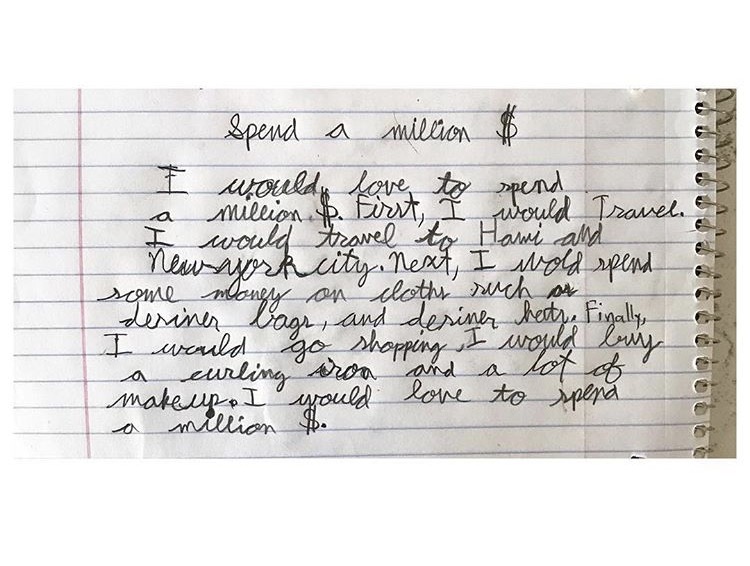 Spend a million $
I would love to spend
a million $. First, I would Travel.
I would travel to Hawi and
New-york city. Next, I wold spend
some money on cloths such as
desiner bags, and desiner hats. Finally,
I would go shopping, I would buy
a curling iron and a lot of
makeup. I would love to spend
a million $.